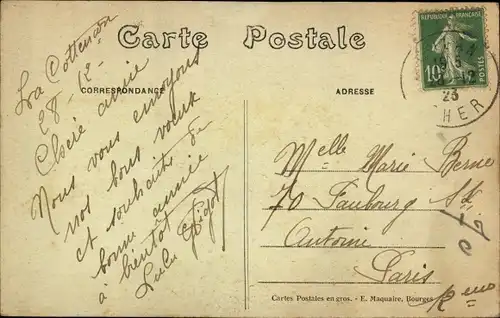 Carte Postale
CORRESPONDANCE
ADRESSE
RÉPUBLIQUE FRANÇAISE
10
POSTES
23
CHER
28-12-
amie
Nous vous envoyons
nos bons voeux
et souhaits de
bonne année
à bientôt
Lulu
Melle Marie Berne
70 Faubourg St
Antoine
Paris
Cartes Postales en gros. - E. Maquaire, Bourges